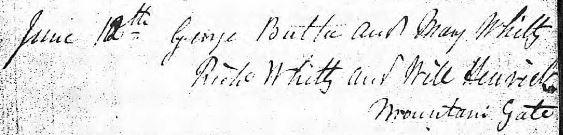 June 12th George Butler and Mary Whitty
Richd Whitty and Will Henrick
Mountain Gate